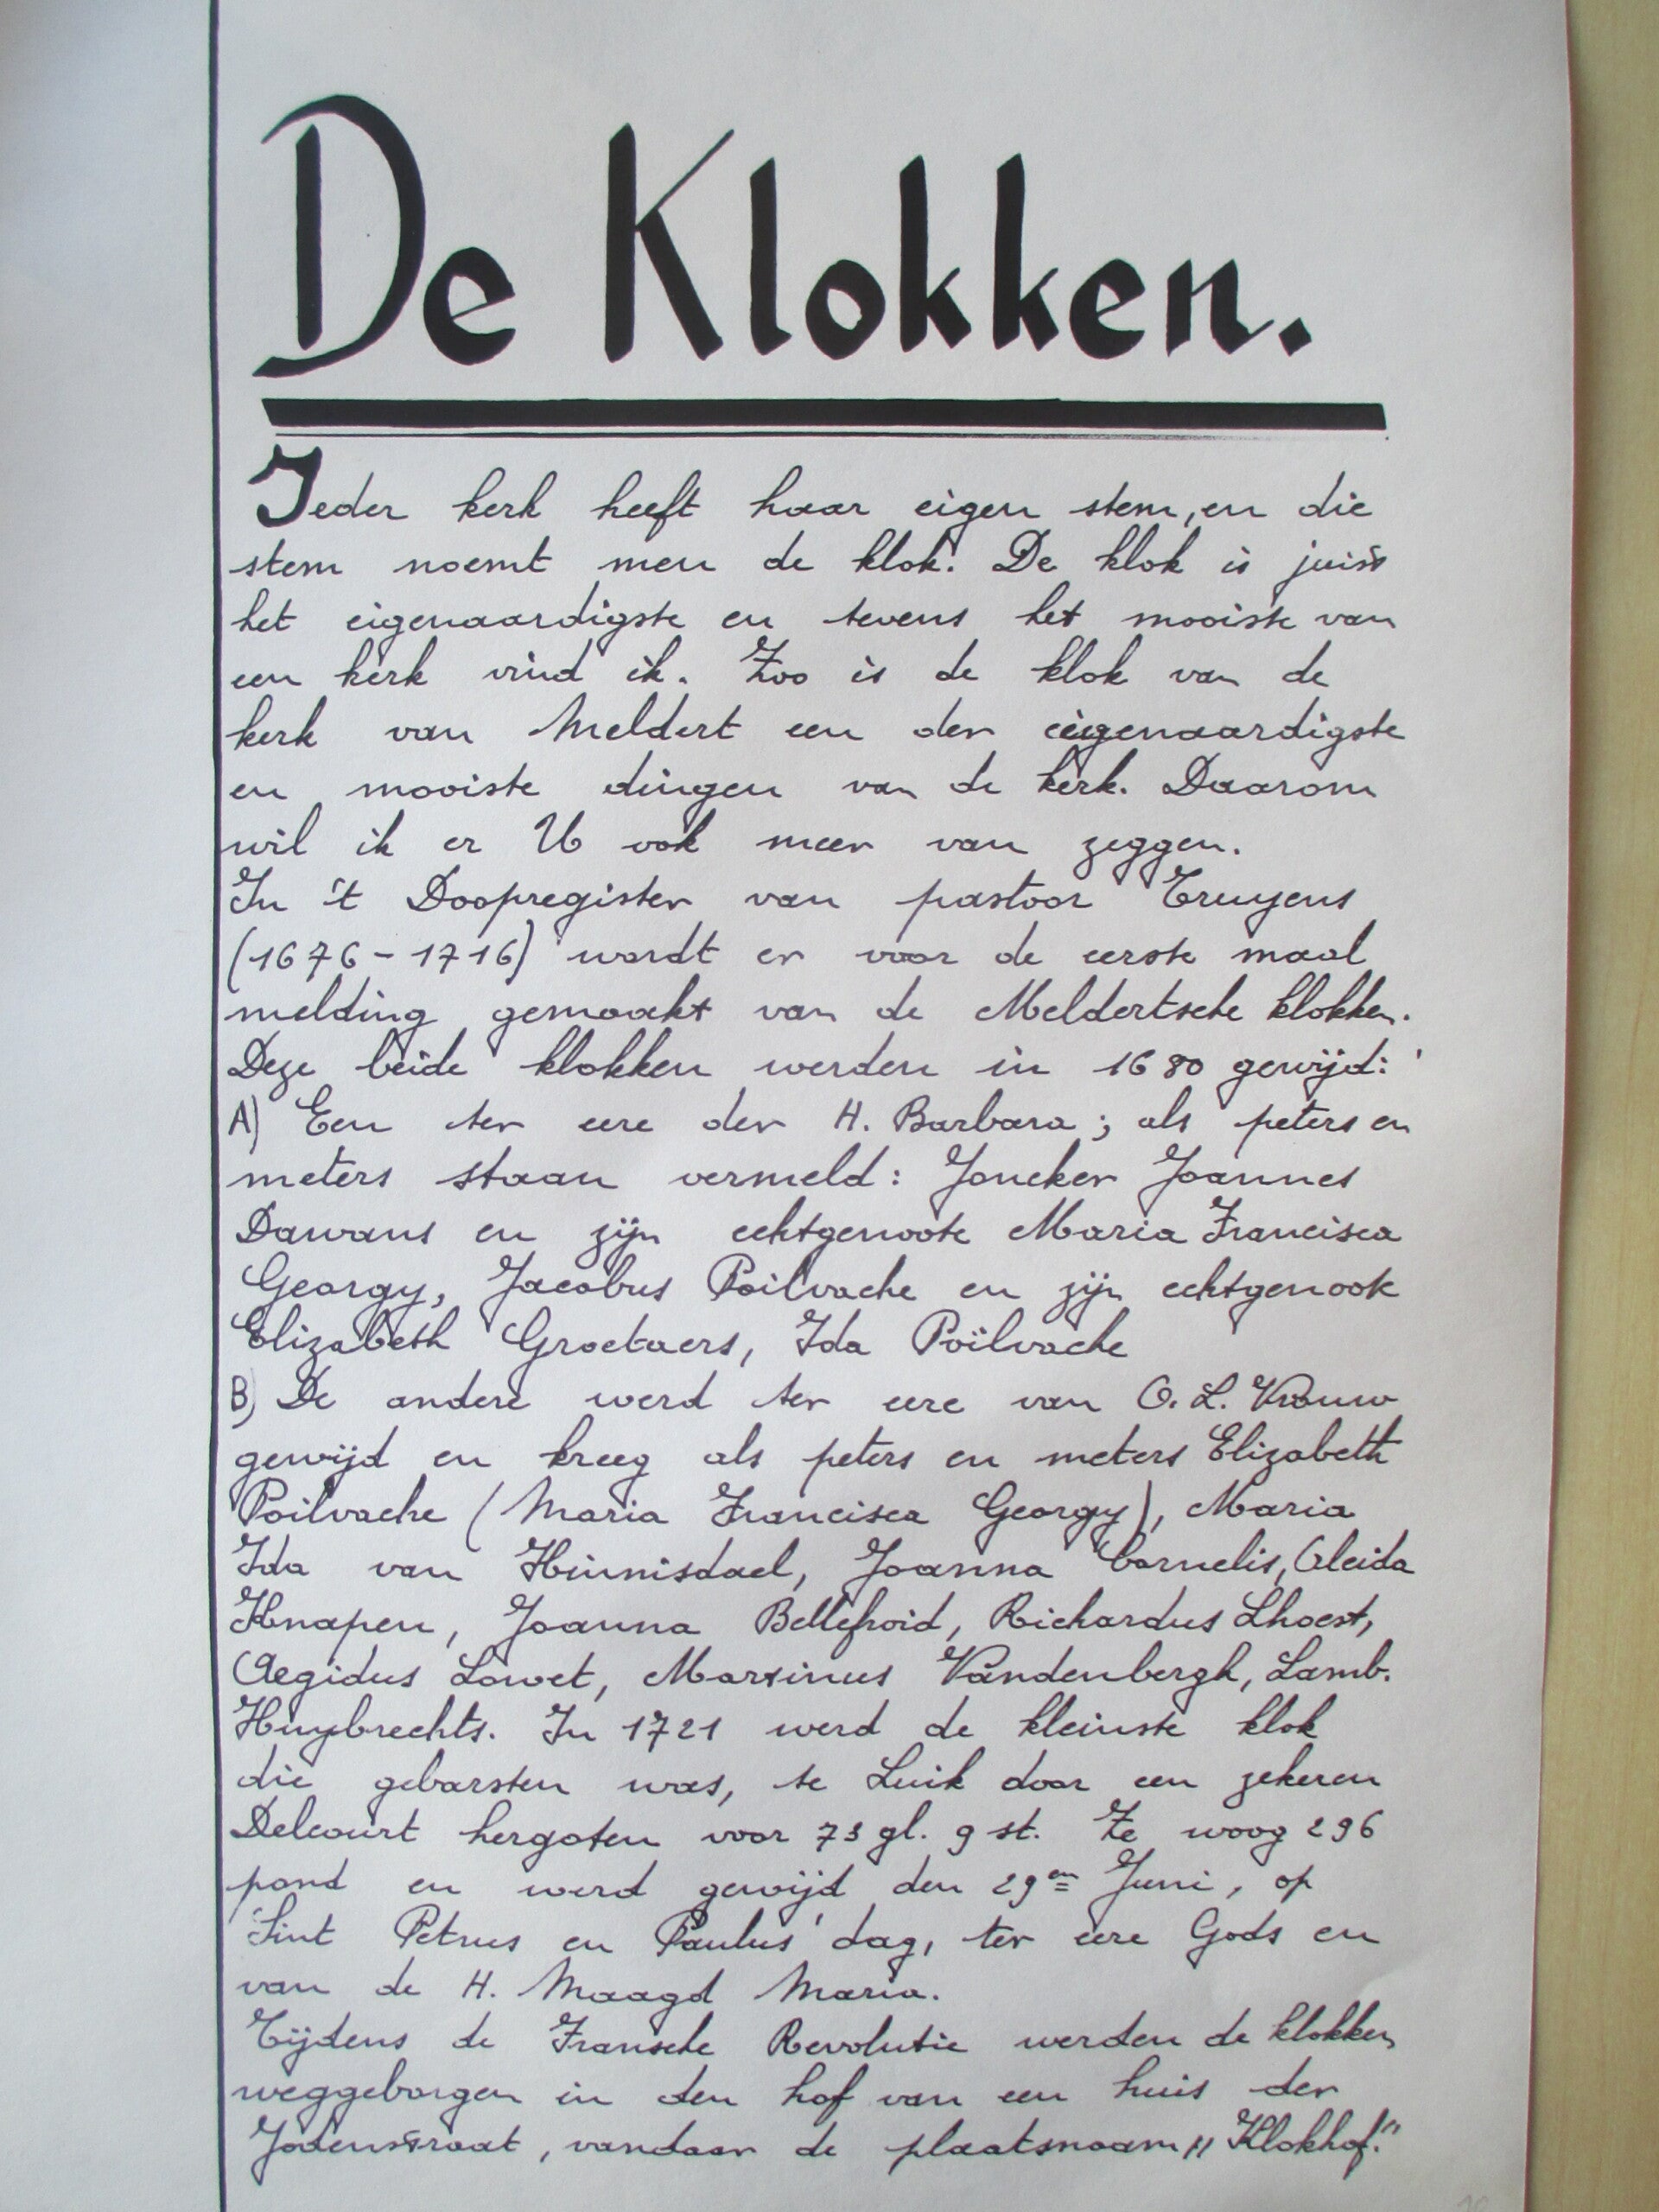 De Klokken.
Ieder kerk heeft haar eigen stem, en die
stem noemt men de klok. De klok is juist
het eigenaardigste en tevens het mooiste van
een kerk vind ik. Zoo is de klok van de
kerk van Meldert een der eigenaardigste
en mooiste dingen van de kerk. Daarom
wil ik er U ook meer van zeggen.
In 't Doopregister van pastoor Truyens
(1676-1716) wordt er voor de eerste maal
melding gemaakt van de Meldertsche klokken.
Deze beide klokken werden in 1680 gewijd:
A) Een ter eere der H. Barbara; als peters en
meters staan vermeld: Joncker Joannes
Dawans en zijn echtgenoote Maria Francisca
Georgy, Jacobus Poilvache en zijn echtgenoote
Elizabeth Groetaers, Ida Poilvache
B) De andere werd ter eere van O. L. Vrouw
gewijd en kreeg als peters en meters Elizabeth
Poilvache (Maria Francisca Georgy), Maria
Ida van Hinnisdael, Joanna Cornelis, Aleida
Knapen, Joanna Bellefroid, Richardus Lhoest,
Aegidus Lowet, Martinus Vandenbergh, Lamb.
Huybrechts. In 1721 werd de kleinste klok
die gebarsten was, te Luik door een zekeren
Delcourt hergoten voor 73 gl. 9 st. Ze woog 296
pond en werd gewijd den 29en Juni, op
Sint Petrus en Paulus' dag, ter eere Gods en
van de H. Maagd Maria.
Tijdens de Fransche Revolutie werden de klokken
weggeborgen in den hof van een huis der
Jodenstraat, vandaar de plaatsnaam „Klokhof."